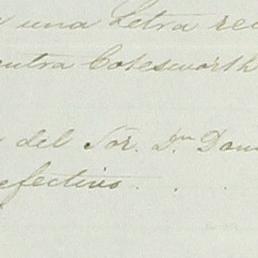 una Letra re
contra Cotesworth
del Sor. Dn. Dom
efectivo . . .